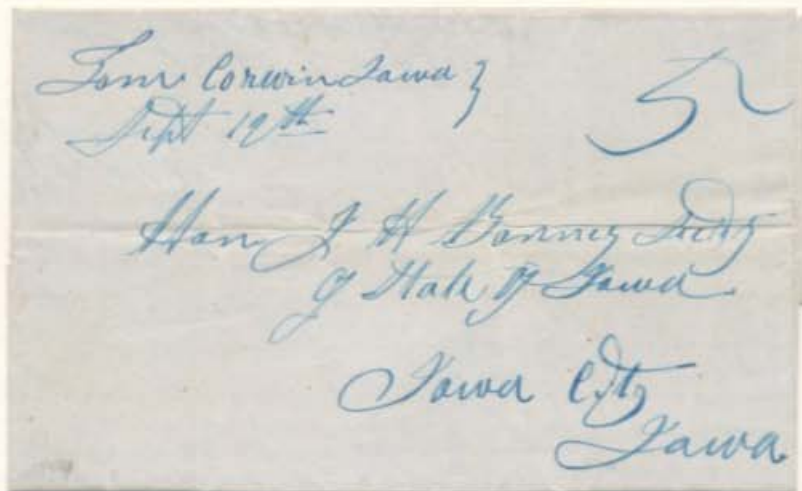 Tom Corwin Iowa }
Sept 19th
5
Hon J H Bonney Secty
of State of Iowa
Iowa City
Iowa